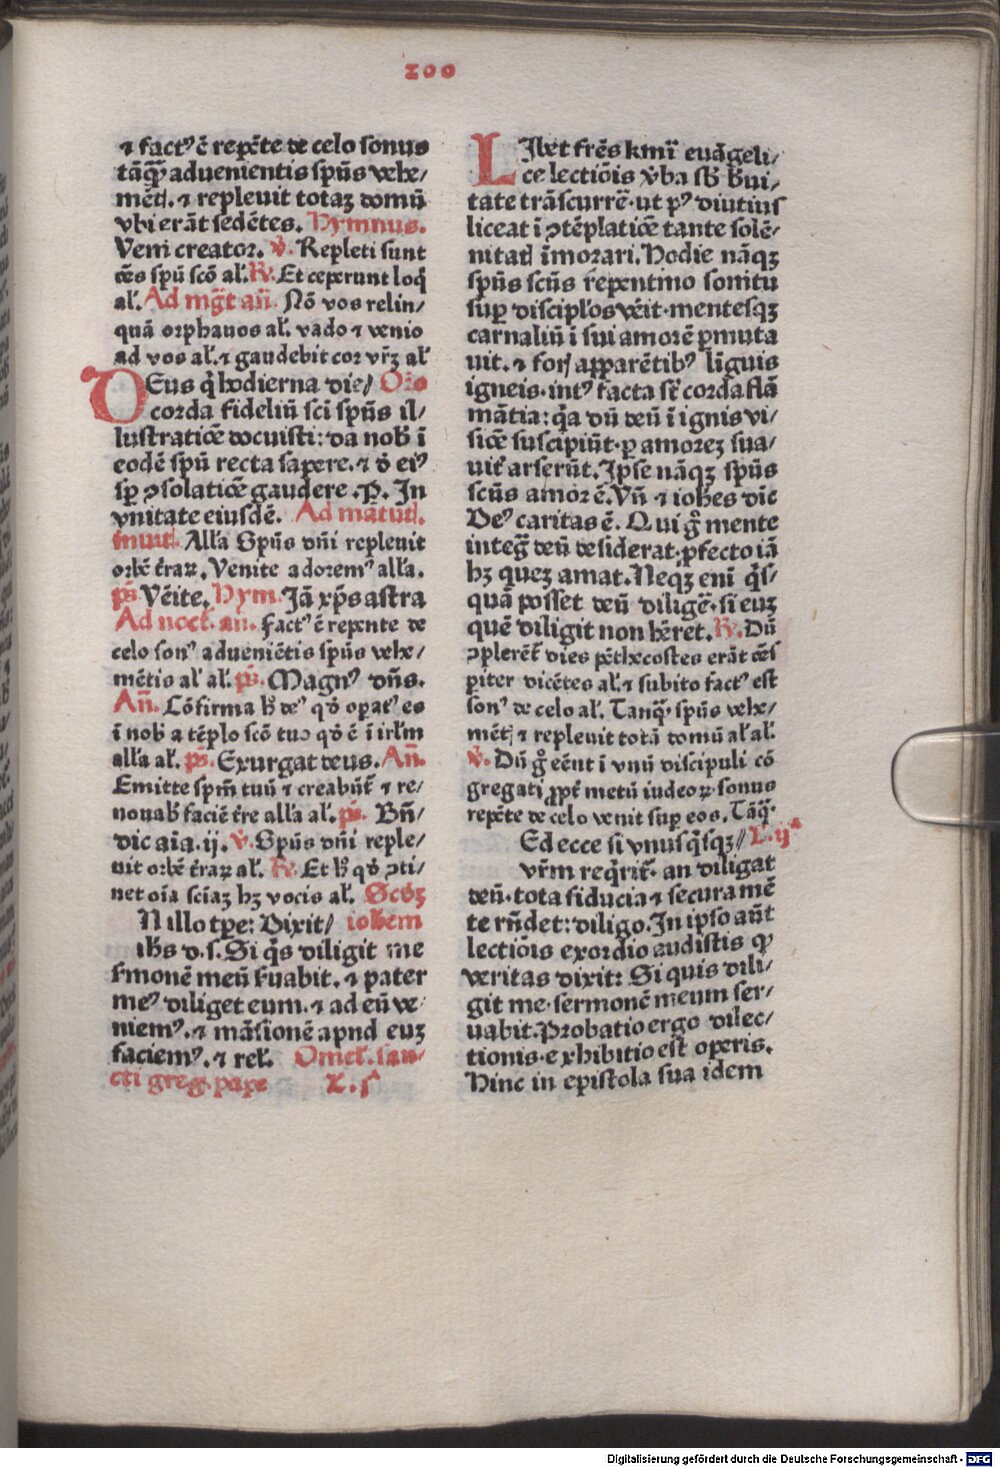 200
⁊ factꝰ ē repēte de celo sonus
tāqꝫ aduenientis spūs vehe/
mēt. ⁊ repleuit totaꝫ domū
vbi erāt sedētes. Hymnus.
Veni creator. ꝟ. Repleti sunt
oēs spū scō al'. R̃. Et ceperunt loq̄
al'. Ad mg̃t añ. Nō vos relin/
quā orphanos al'. vado ⁊ venio
ad vos al'. ⁊ gaudebit cor vr̄ꝫ al'
DEus q̇ hodierna die/ Orō
corda fideliū sci spūs il/
lustratiōe docuisti: da nob̄ ī
eodē spū recta sapere. ⁊ d̄ eiꝰ
sꝑ ꝯsolatiōe gaudere. P. In
vnitate eiusdē. Ad matut.
īnuit. All'a Spūs dn̄i repleuit
orbē t̄raꝝ. Venite adoremꝰ all'a.
ps̄. Vēite. Hym. Iā xp̄s astra
Ad noct. añ. Factꝰ ē repente de
celo sonꝰ adueniētis spūs vehe/
mētis al' al'. ps̄. Magnꝰ dn̄s.
Añ. Cōfirma h̄ deꝰ qd̄ opatꝰ es
ī nob a tēplo scō tuo qd̄ ē ī irl'm
all'a al'. ps̄. Exurgat deus. Añ.
Emitte spm̄ tuū ⁊ creabūt ⁊ re/
nouab̄ faciē t̄re all'a al'. ps̄. Bn̄/
dic aīa. ij. ꝟ. Spūs dn̄i reple/
uit orbē t̄raꝝ al'. R̃. Et h̄ qd̄ ꝯti/
net oīa sciaꝫ hꝫ vocis al'. Scd̄ꝫ
N illo tꝑe: Dixit/ iohem
ihs d. s. Si q̇s diligit me
s̄monē meū s̄uabit. ⁊ pater
meꝰ diliget eum. ⁊ ad eū ve/
niemꝰ. ⁊ māsionē apud euꝫ
faciemꝰ. ⁊ rel'. Omel'. san/
cti greg. pape L. j
LIbet fr̄es kmī euāgeli/
ce lectiōis v̄ba sb̄ b̄ui/
tate trāscurrē. ut pꝰ diutius
liceat ī ꝯtēplatiōe tante solē/
nitat īmorari. Hodie nāqꝫ
spūs scūs repentino sonitu
suꝑ discip̄los vēit. mentesqꝫ
carnaliū ī sui amorē ꝑmuta
uit. ⁊ foris apparētibꝰ linguis
igneis. intꝰ facta st̄ corda flā
mātia: q̇a dū deū ī ignis vi/
siōe suscipiūt. ꝑ amoreꝫ sua/
uit̄ arserūt. Ipse nāqꝫ spūs
scūs amor ē. Vn̄ ⁊ iohes dic
Deꝰ caritas ē. Qui g̊ mente
integ̃ deū desiderat. ꝓfecto iā
hꝫ queꝫ amat. Neqꝫ enī q̇s/
quā posset deū diligē. si euꝫ
quē diligit non hēret. R̃. Dū
ꝯplerēt dies pēthecostes erāt oēs
ꝑiter dicētes al'. ⁊ subito factꝰ est
sonꝰ de celo al'. Tanqͣ spūs vehe/
mēt ⁊ repleuit totā domū al' al'.
ꝟ. Dū g̊ eēnt ī vnū discipuli cō
gregati ꝓpt̄ metū iudeoꝝ. sonus
repēte de celo venit suꝑ eos. Tāqͣ
Ed ecce si vnusq̇sqꝫ// L. ijᵃ
vr̄m req̇rit̄. an diligat
deū. tota fiducia ⁊ secura mē
te rn̄det: diligo. In ipso aūt
lectiōis exordio audistis qꝫ
veritas dixit: Si quis dili/
git me. sermonē meum ser/
uabit. Probatio ergo dilec/
tionis. exhibitio est operis.
Hinc in epistola sua idem
Digitalisierung gefördert durch die Deutsche Forschungsgemeinschaft - DFG